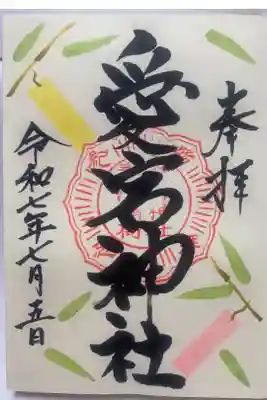 奉拝
愛宕神社
令和七年七月五日